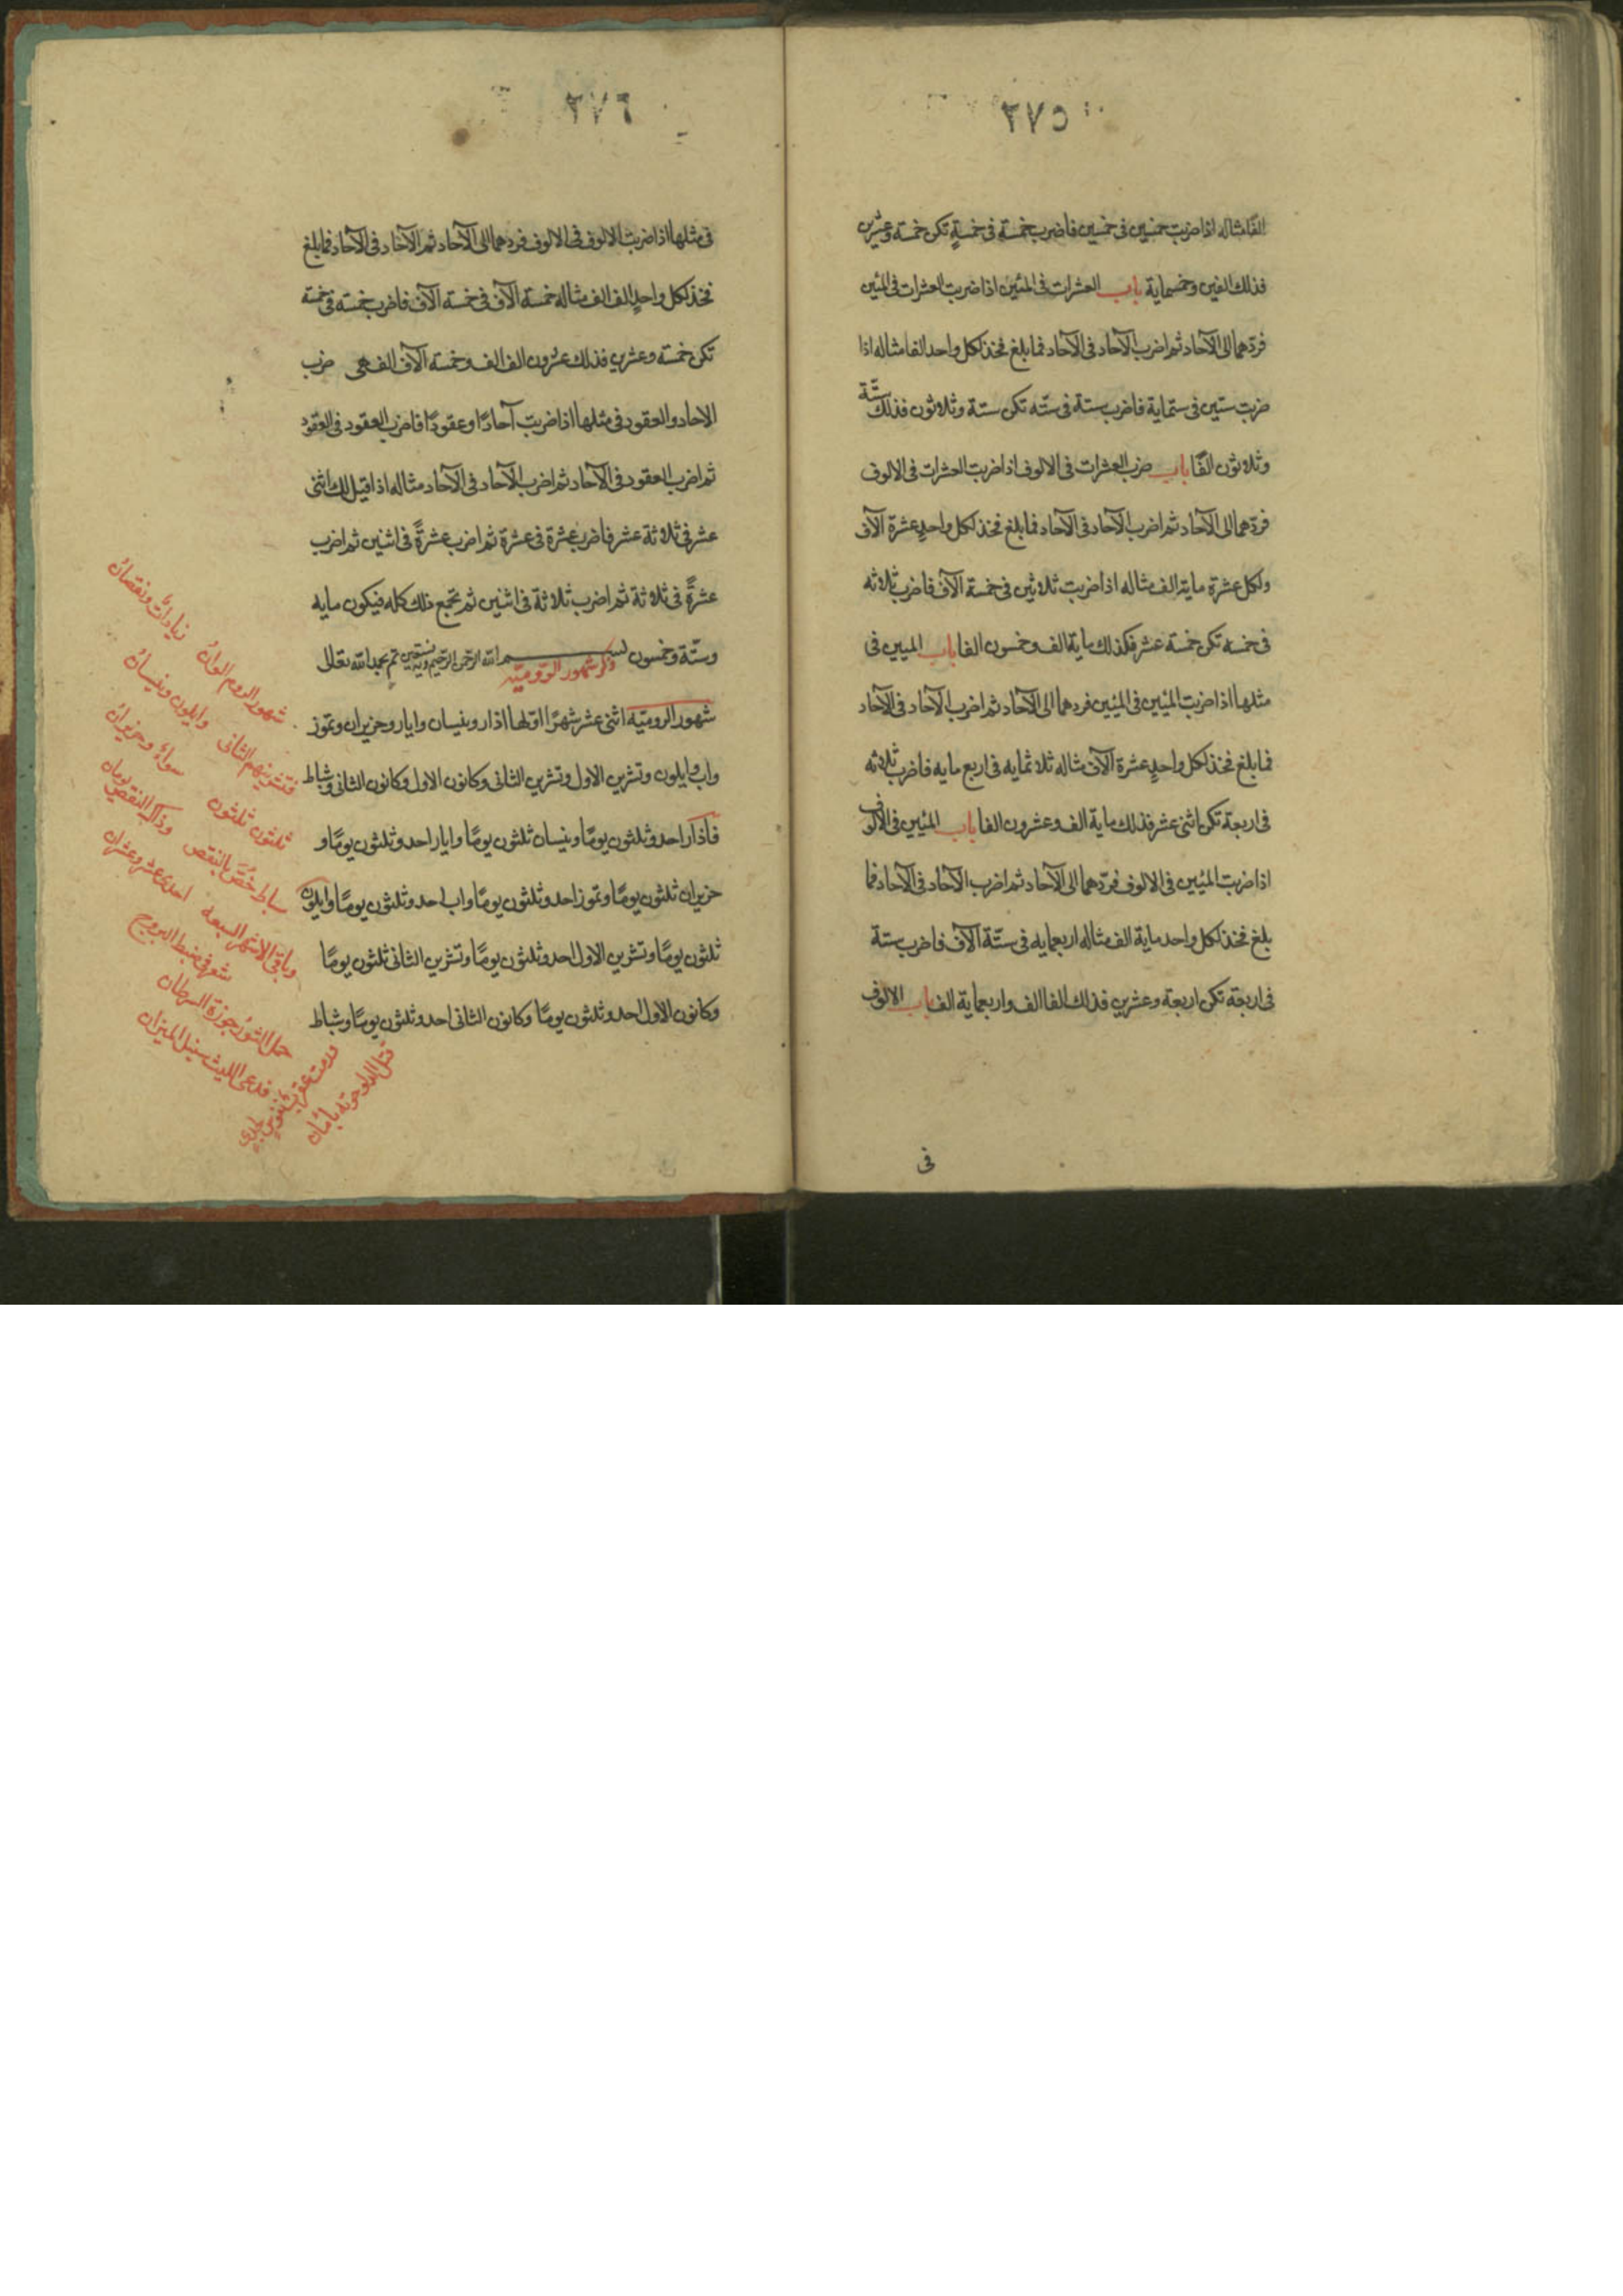 ٢٧٥
الفًا مثاله اذا ضربت خمسين فى خمسين فاضرب خمسة فى خمسةٍ تكن خمسة وعشرين
فذلك الفين وخمسماية باب العشرات فى المئين اذا ضربت العشرات فى المئين
فردهما الى الآحاد ثم اضرب الآحاد فى الآحاد فما بلغ فخذ لكل واحد الفا مثاله اذا
ضربت ستين فى ستماية فاضرب ستة فى ستّه تكن ستة وثلاثون فذلك ستّة
وثلاثون الفًا باب ضرب العشرات فى الالوف اذا ضربت العشرات فى الالوف
فردّهما الى الآحاد ثم اضرب الآحاد فى الآحاد فما بلغ فخذ لكل واحدٍ عشرة آلآف
ولكل عشرة ماية الف مثاله اذا ضربت ثلاثين فى خمسة آلآف فاضرب ثلاثه
فى خمسه تكن خمسة عشر فكذلك ماية الف وخمسون الفا باب الميين فى
مثلها اذا ضربت الميئين فى الميئين فردهما الى الآحاد ثم اضرب الآحاد فى الآحاد
فما بلغ فخذ لكل واحدٍ عشرة آلآف مثاله ثلاثمايه فى اربع مايه فاضرب ثلاثه
فى اربعة تكن اثنى عشر فذلك ماية الف وعشرون الفا باب الميئين فى الالوف
اذا ضربت الميئين فى الالوف فردّهما الى الآحاد ثم اضرب الآحاد فى الآحاد فما
بلغ فخذ لكل واحد ماية الف مثاله اربعمايه فى ستّة آلآف فاضرب ستة
فى اربعة تكن اربعة وعشرين فذلك الفا الف واربعماية الف باب الالوف
فى
٢٧٦
فى مثلها اذا ضربت الالوف فى الالوف فردهما الى الآحاد ثم الآحاد فى الآحاد فما بلغ
فخذ لكل واحدٍ الف الف مثاله خمسة آلآف فى خمسه آلآف فاضرب خمسه فى خمسة
تكن خمسة وعشرين فذلك عشرون الف الف وخمسة آلآف الف ضرب
الاحاد والعقود فى مثلها اذا ضربت آحادًا وعقودًا فاضرب العقود فى العقود
ثم اضرب العقود فى الآحاد ثم اضرب الآحاد فى الآحاد مثاله اذا قيل لك اثنى
عشر فى ثلاثة عشر فاضرب عشرة فى عشرة ثم اضرب عشرةً فى اثنين ثم اضرب
عشرةً فى ثلاثة ثم اضرب ثلاثة فى اثنين ثم تجمع ذلك كله فيكون مايه
وستّة وخمسون بسم الله الرحمن الرحيم وبه نستعين تم بحمد الله تعالى
ذكر شهور الروميّه
شهور الروميّه اثنى عشر شهرًا اوّلها اذار ونيسان وايار وحزيران وتموز
واب وايلون وتشرين الاول وتشرين الثانى وكانون الاول وكانون الثانى وشباط
فآذار احد وثلثون يومًا ونيسان ثلثون يومًا وايار احد وثلثون يومًا و
حزيران ثلثون يومًا وتموز احد وثلثون يومًا واب احد وثلثون يومًا وايلون
ثلثون يومًا وتشرين الاول احد وثلثون يومًا وتشرين الثانى ثلثون يومًا
وكانون الاول احد وثلثون يومًا وكانون الثانى احد وثلثون يومًا وشباط
شهور الروم الوانُ زياداتٌ ونقصانُ
فتشرينهم الثانى وايلون ونيسانُ
ثلثون ثلثون سواءٌ وحزيرانُ
سباط خُصَّ بالنقص وذاك النقص يومان
وباقى الاشهر السبعة احدى عشر وعشران
شعر فى ضبط البروج
حمل الثور جوزة السرطان
فدعى الليث سنبل الميزان
فرمت عقرب بقوس لجدى
الدلو حوته بامان